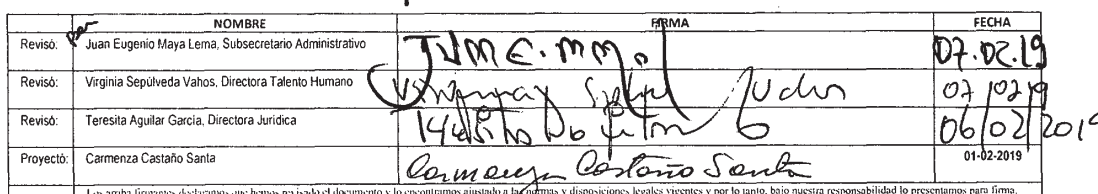 NOMBRE FIRMA FECHA
Revisó: Juan Eugenio Maya Lema, Subsecretario Administrativo 07.02.19
Revisó: Virginia Sepúlveda Vahos, Directora Talento Humano 07/02/19
Revisó: Teresita Aguilar García, Directora Jurídica 06/02/2019
Proyectó: Carmenza Castaño Santa Carmenza Castaño Santa 01-02-2019
Los arriba firmantes declaramos que hemos revisado el documento y lo encontramos ajustado a las normas y disposiciones legales vigentes y por lo tanto, bajo nuestra responsabilidad lo presentamos para firma.